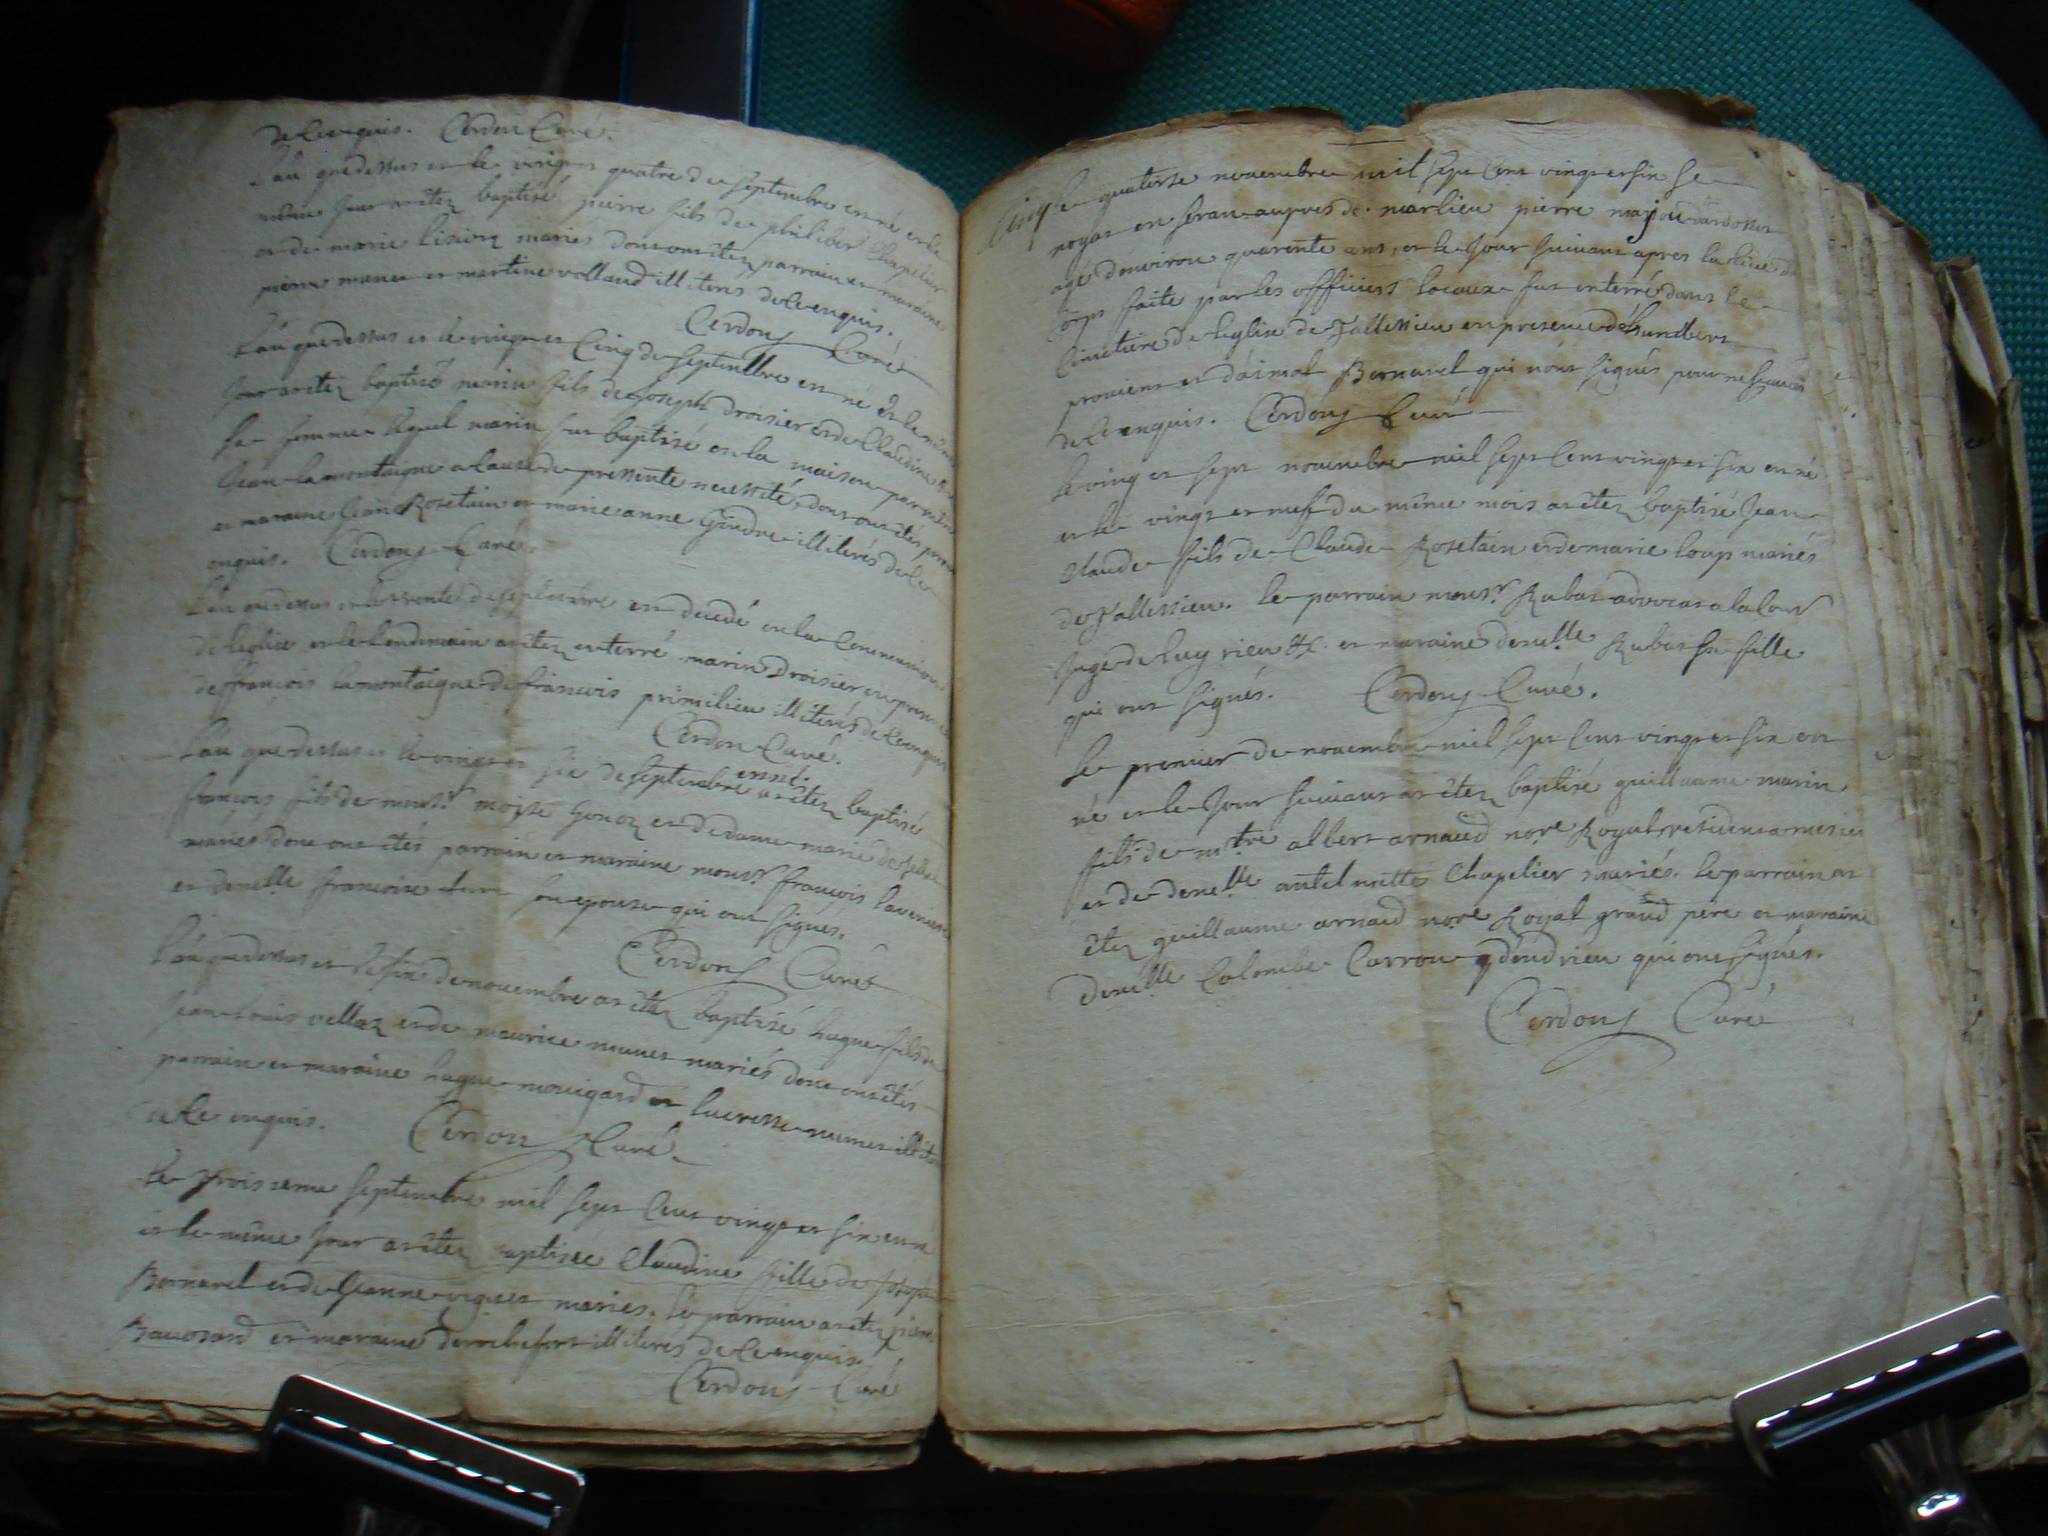 de ce enquis. Cerdon Curé.
L'an que dessus et le vingt quatre de septembre est né et le
même jour a etez baptisé pierre fils de philibert Chapelier
et de marie maries dont ont etez parrain et maraine
pierre et martine vollaud illiteres de ce enquis.
Cerdon Curé
L'an que dessus et le vingt et cinq de septembre est né et le même
jour a etez baptisé marin fils de joseph droisier et de Claudine
sa femme lequel marin fut baptisé en la maison par
jean lamontaigne a cause de pressente necessité, dont ont etez
et maraine Rosetain et marie anne Gindre illiterés de ce
enquis. Cerdon Curé.
L'an que dessus et le trente de septembre est decedé en la Communion
de l'eglise et le lendemain a etez enterré marin Droisier en presence
de françois lamontaigne de françois primilieu illiterés de ce enquis
Cerdon Curé.
L'an que dessus et le vingt et six de septembre est né. a etez baptisé
françois fils de mons.r moise Gonoz et de dame marie de
mariés dont ont étés parrain et maraine mons.r françois
et demelle françoise son epouse qui ont signés.
Cerdon Curé
L'an que dessus et le six de novembre a etez baptisé hugue fils de
jean louis vellaz et de maurice mariés dont ont étés
parrain et maraine hugue et lucresse
de ce enquis. Cerdon Curé.
Le troisieme septembre mil sept cent vingt et six est né
et le même jour a etez baptisée Claudine fille de joseph
Bornarel et de jeanne maries. le parrain a etez pierre
et maraine derochefort illiterés de ce enquis.
Cerdon Curé
Le quatorse novembre mil sept cent vingt et six se
noyat en seran aupres de marlieu pierre
agé d'environ quarente ans, et le jour suivant apres la levée du
corps faite par les officiers locaux fut enterré dans le
cimetiere de l'eglise de Tallissieu en presence d'humbert
et d'aimal Bornarel qui n'ont signés pour ne scavoir
de ce enquis. Cerdon Curé
Le vingt et sept novembre mil sept cent vingt et six est né
et le vingt et neuf du même mois a etez baptisé jean
claude fils de Claude Rosetain et de marie loup mariés
de Tallissieu. le parrain mons.r Rubat advocat a la cour
juge de et maraine demelle Rubat sa fille
qui ont signés. Cerdon Curé.
Le premier de novembre mil sept cent vingt et six est
né et le jour suivant a etez baptisé guillaume marin
fils de m.tre albert arnaud no.re Royal
et de demelle Chapelier mariés. le parrain a
etez guillaume arnaud no.re Royal grand pere et maraine
demelle Colombe Carron qui ont signés.
Cerdon Curé